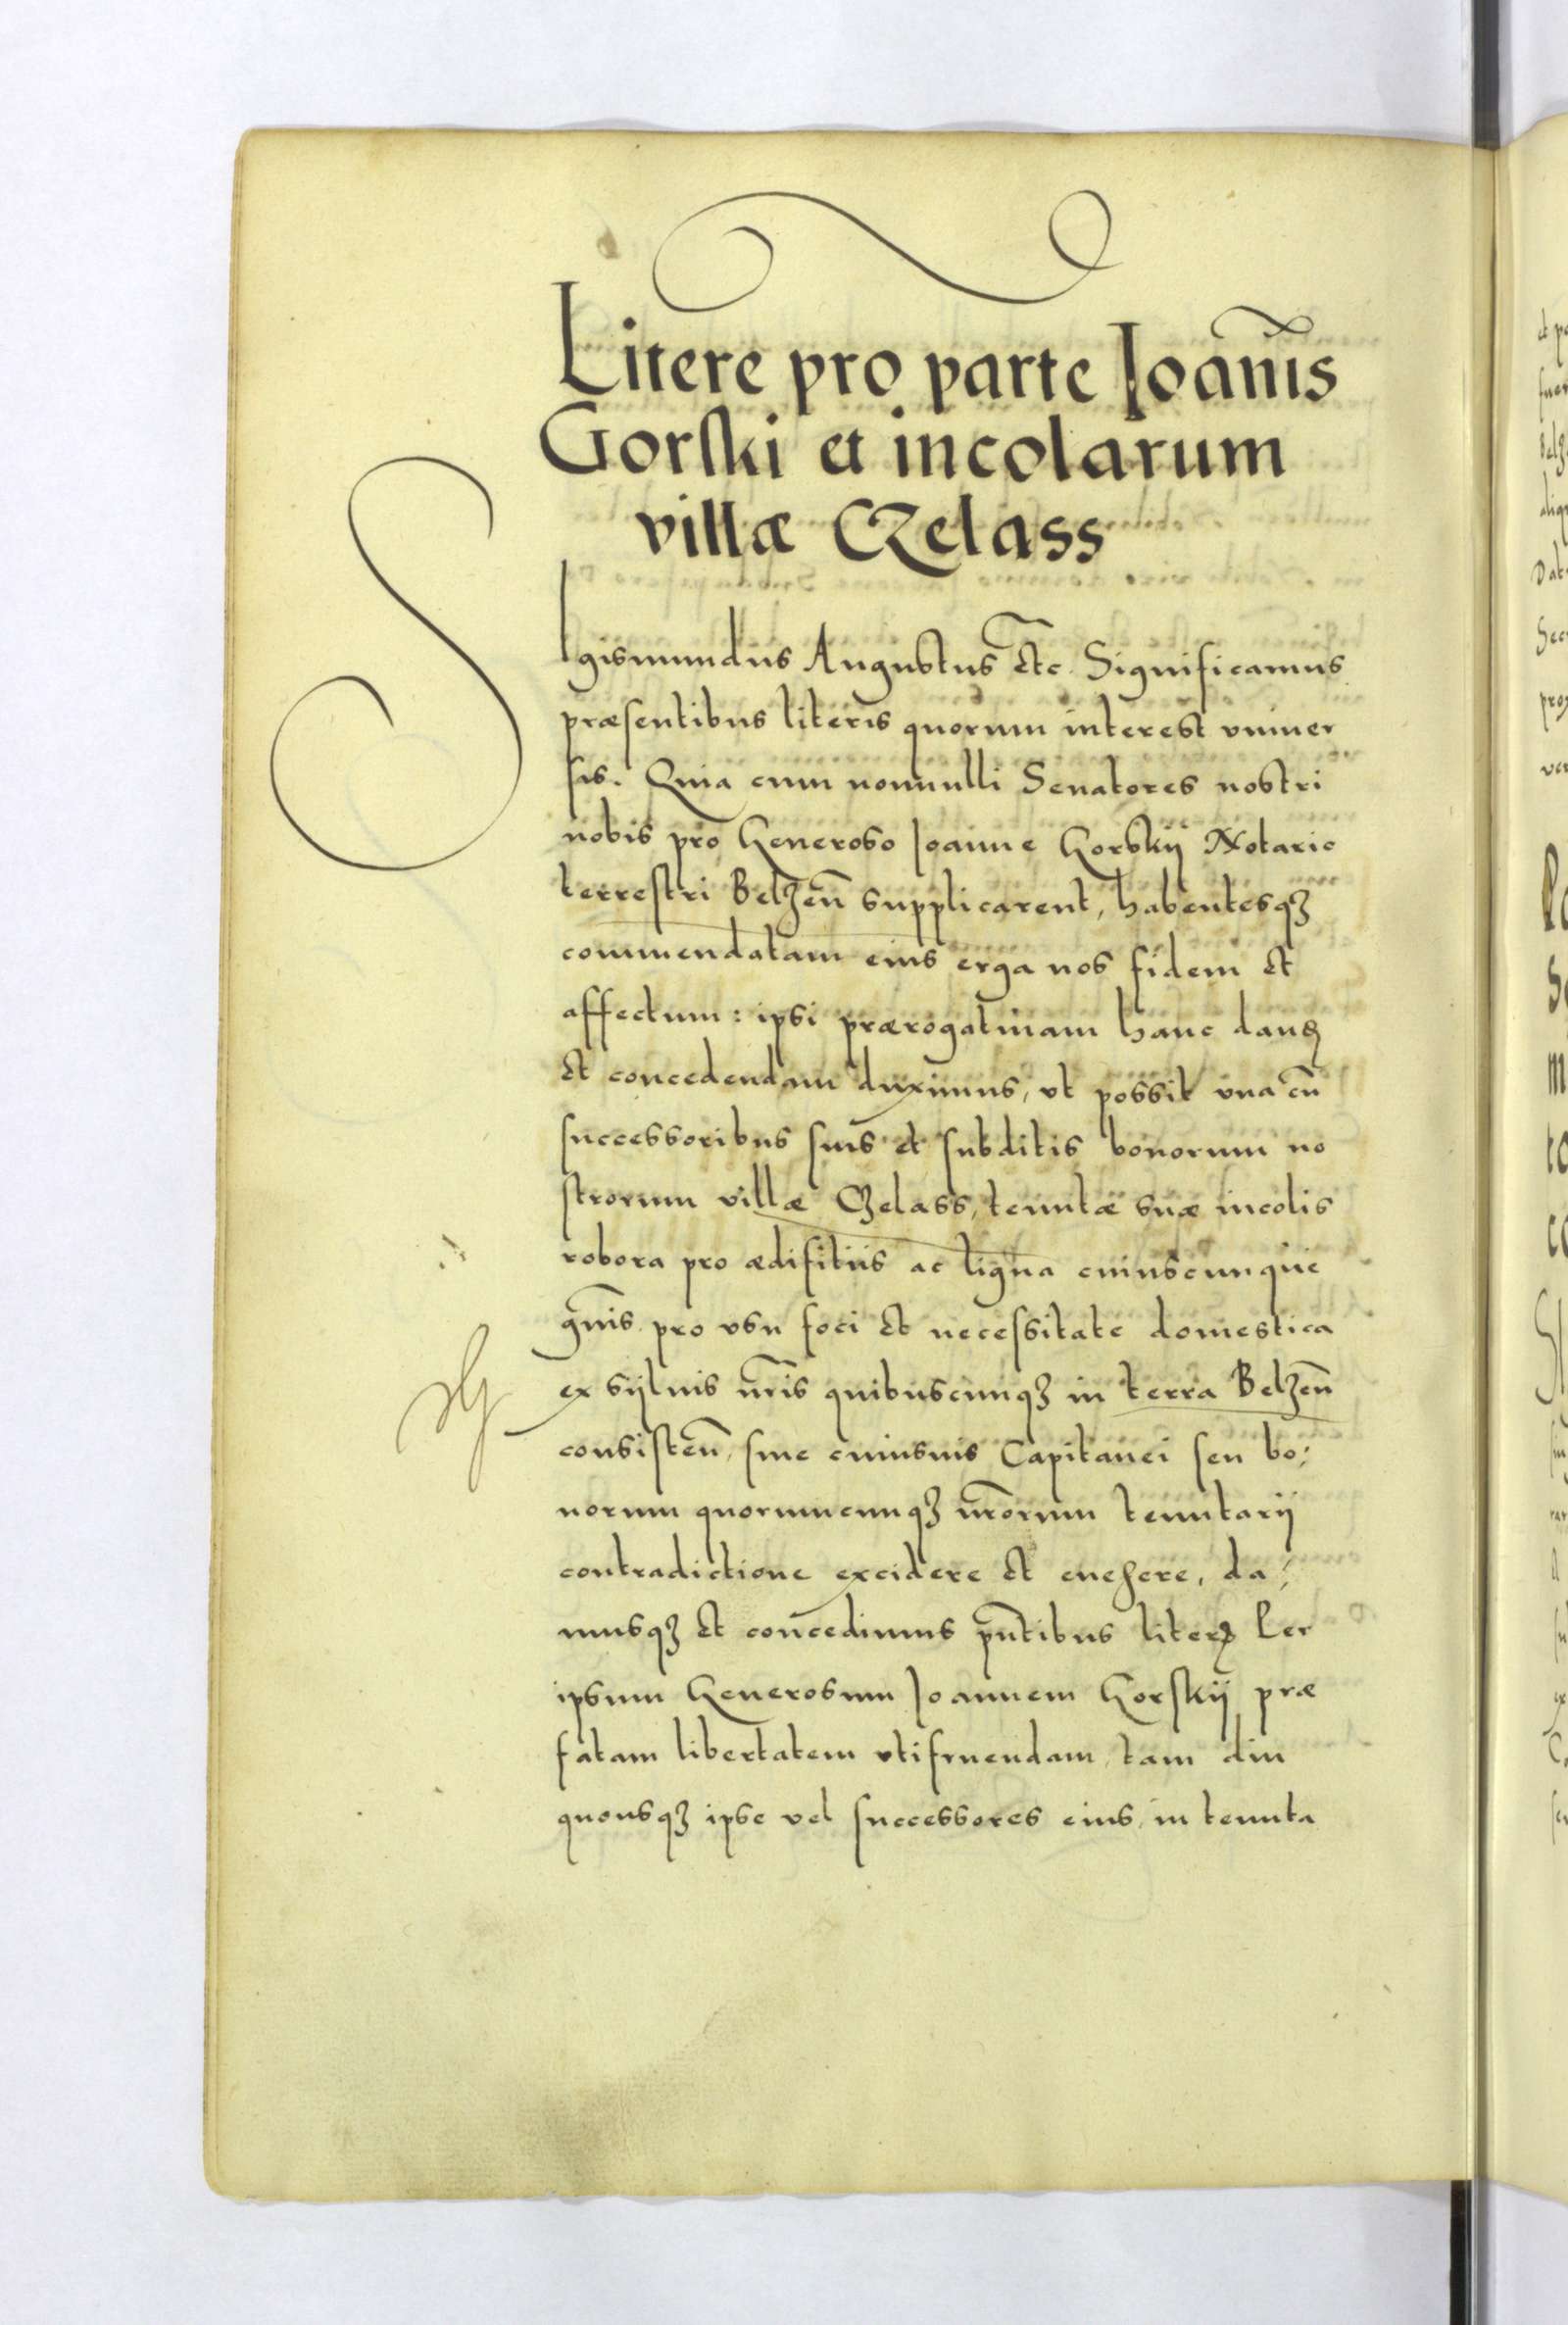 Litere pro parte Ioan̄is
Gorski et incolarum
villæ Czelass
SIgismundus Augustus etc. Significamus
præsentibus literis quorum interest vniuer
sis. Quia cum nonnulli Senatores nostri
nobis pro Generoso Joanne Gorskij Notario
terrestri Belzen̄ supplicarent, habentesqꝫ
commendatam eius erga nos fidem et
affectum: ipsi prærogatiuam hanc danꝫ
et concedendam duximus, vt possit vna cū
successoribus suis et subditis bonorum no
strorum villæ Czelass, tenutæ suæ incolis
robora pro ædifitiis ac ligna cuiuscunque
gn̄is pro vsu foci et necessitate domestica
ex syluis nr̄is quibuscunqꝫ in terra Belzen̄
consisten̄, sine cuiusuis Capitanei seu bo:
norum quorumcunqꝫ nr̄orum tenutarij
contradictione excidere et euehere, da:
musqꝫ et concedimus pn̄tibus literꝫ Per
ipsum Generosum Joannem Gorskij præ
fatam libertatem vtifruendam, tam diu
quousqꝫ ipse vel successores eius, in tenuta